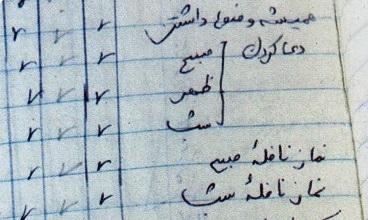 همیشه وضوء داشتن
دعا کردن
صبح
ظهر
شب
نماز نافلهٔ صبح
نماز نافلهٔ شب